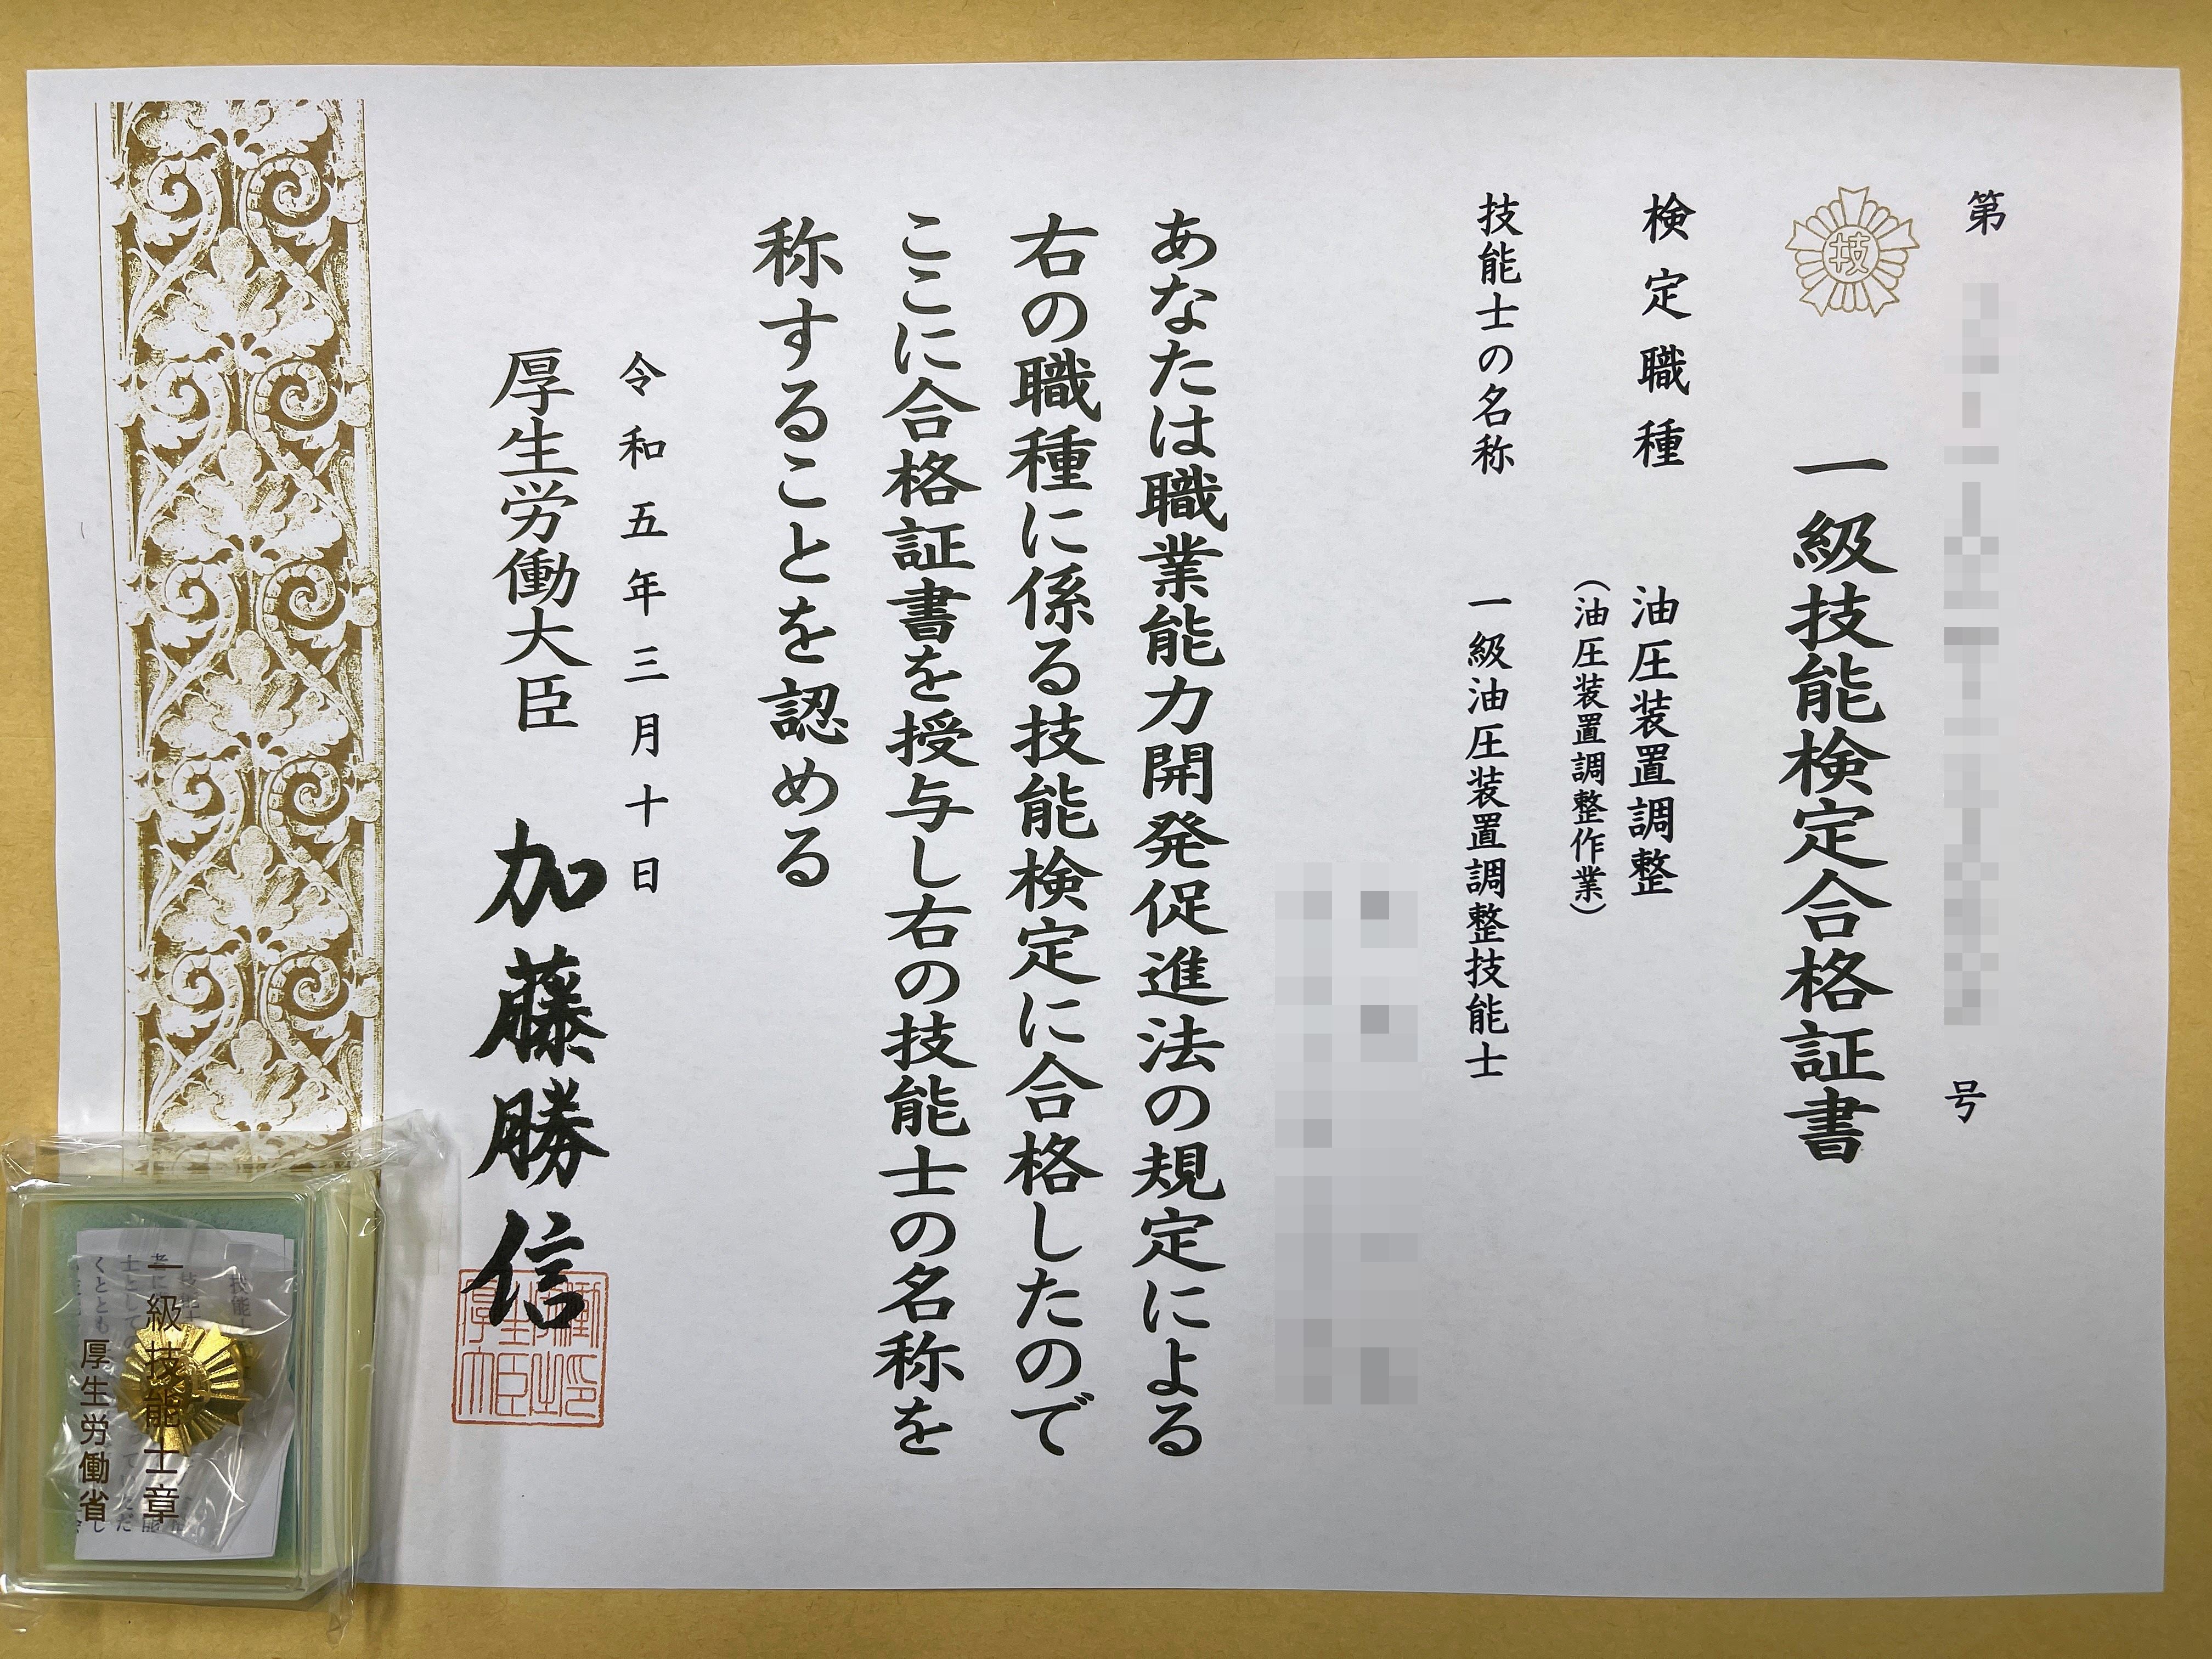 第
号
技
一級技能検定合格証書
検定職種
油圧装置調整
（油圧装置調整作業）
技能士の名称
一級油圧装置調整技能士
あなたは職業能力開発促進法の規定による
右の職種に係る技能検定に合格したので
ここに合格証書を授与し右の技能士の名称を
称することを認める
令和五年三月十日
厚生労働大臣
加藤勝信
一級技能士章
厚生労働省